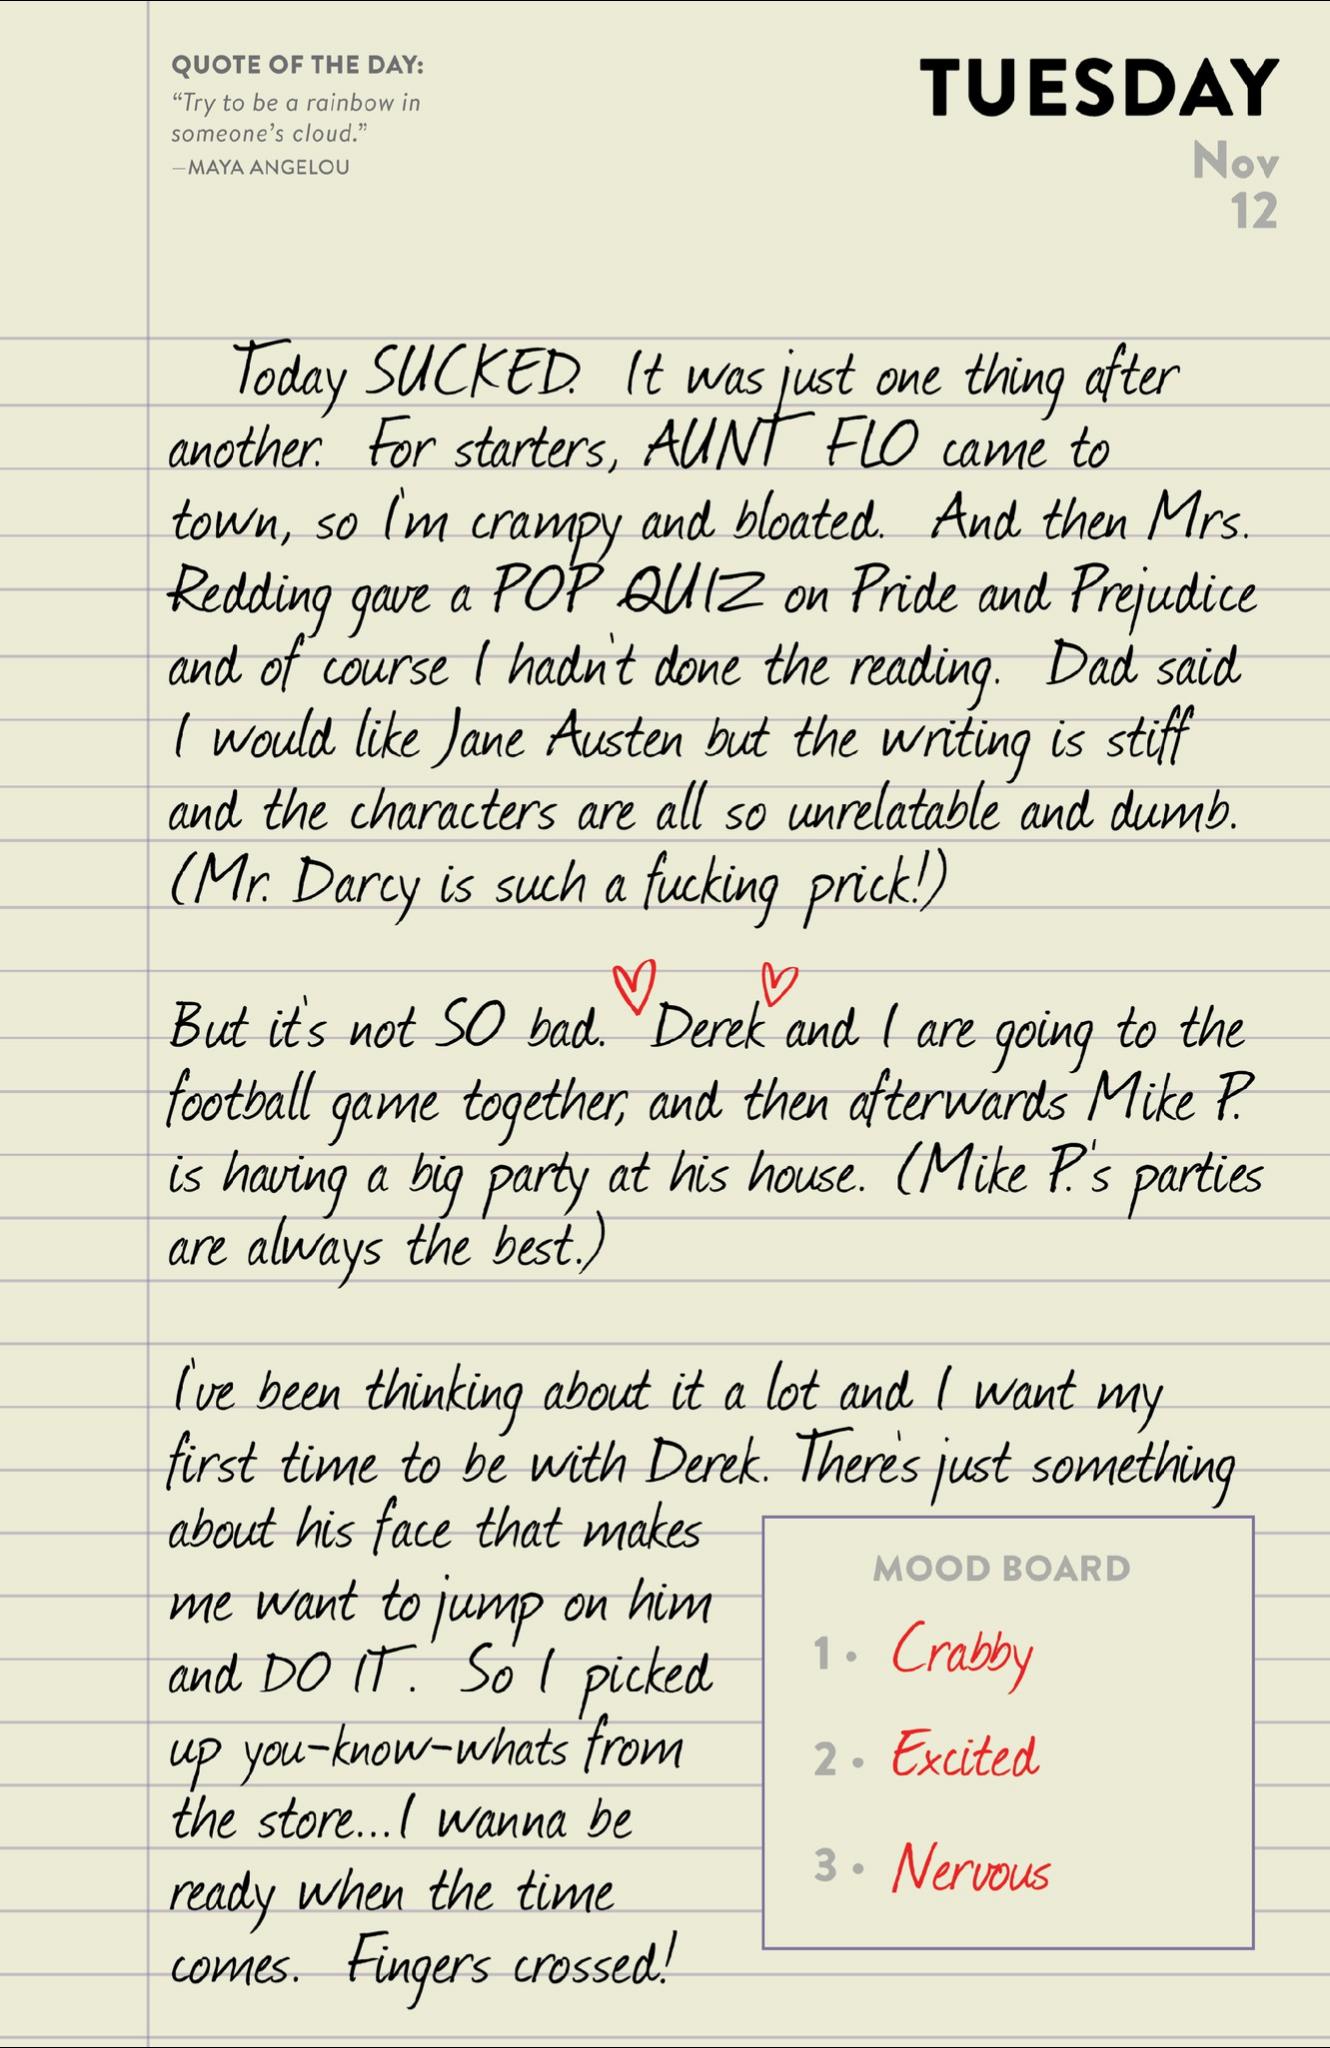 QUOTE OF THE DAY:
“Try to be a rainbow in
someone’s cloud.”
—MAYA ANGELOU
TUESDAY
Nov
12
Today SUCKED. It was just one thing after
another. For starters, AUNT FLO came to
town, so I'm crampy and bloated. And then Mrs.
Redding gave a POP QUIZ on Pride and Prejudice
and of course I hadn't done the reading. Dad said
I would like Jane Austen but the writing is stiff
and the characters are all so unrelatable and dumb.
(Mr. Darcy is such a fucking prick!)
But it's not SO bad. Derek and I are going to the
football game together, and then afterwards Mike P.
is having a big party at his house. (Mike P.'s parties
are always the best.)
I've been thinking about it a lot and I want my
first time to be with Derek. There's just something
about his face that makes
me want to jump on him
and DO IT. So I picked
up you-know-whats from
the store...I wanna be
ready when the time
comes. Fingers crossed!
MOOD BOARD
1 • Crabby
2 • Excited
3 • Nervous